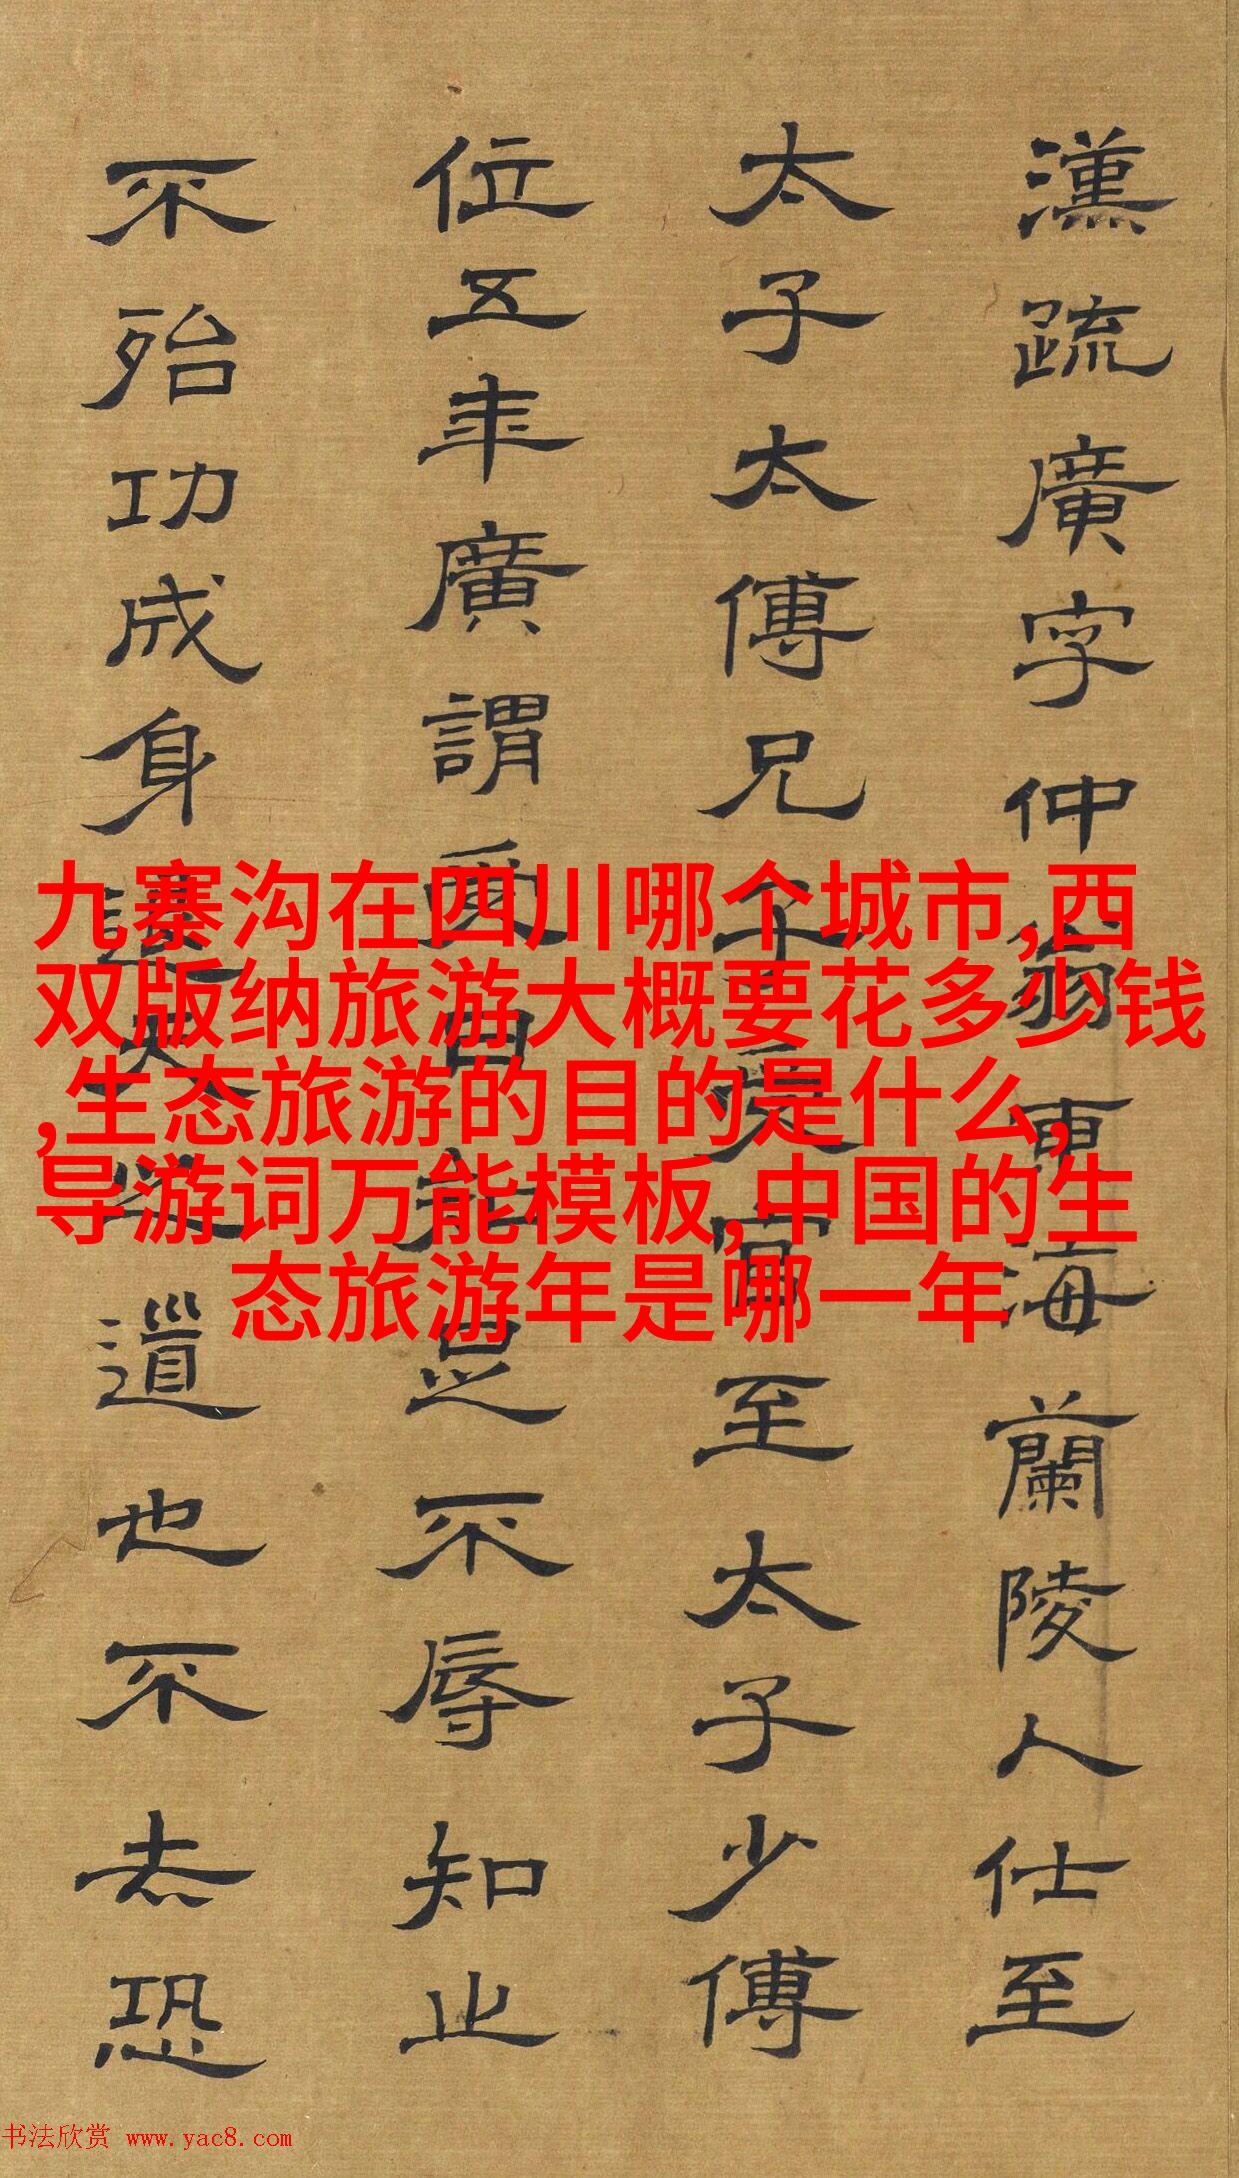 漢疏廣字仲翁東海蘭陵人仕至
太子太傅兄子受官至太子少傅
位五年廣謂受曰知足不辱知止
不殆功成身退天之道也不去恐
九寨沟在四川哪个城市,西
双版纳旅游大概要花多少钱
,生态旅游的目的是什么,
导游词万能模板,中国的生
态旅游年是哪一年
书法欣赏 www.yac8.com